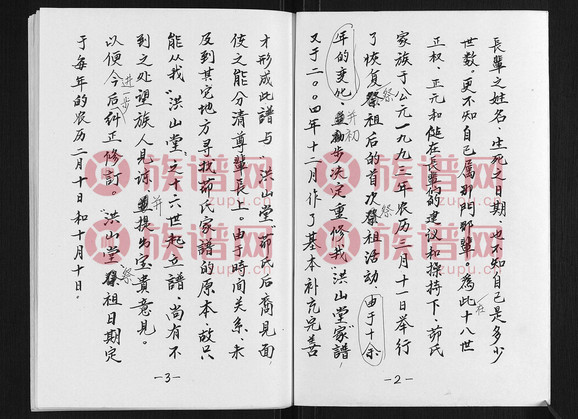 長輩之姓名、生死之日期,也不知自己是多少
世数。更不知自己属那門那輩。為此十八世
在
正权、正元和健在長輩們的建议和操持下,茆氏
家族于公元一九九三年农历二月十一日举行
了恢复祭祖后的首次祭祖活动。由于十余
祭
祭
年的变化,並初步决定重修我"洪山堂"家譜,
并初
又于二〇〇四年十二月作了基本补充完善
-2-
才形成此譜与"洪山堂"茆氏后裔見面,
使之能分清尊輩長上。由于時间关系,未
及到其它地方寻找茆氏家譜的原本,故只
能从我"洪山堂"之十六世起立譜,尚有不
到之处望族人見諒,並提出宝貴意見。
并
以便今后纠正修訂。洪山堂祭祖日期定
进一步
祭
于每年的农历二月十日和十月十日。
-3-
族谱网
zupu.cn
族谱网
zupu.cn
族谱网
zupu.cn
族谱网
zupu.cn